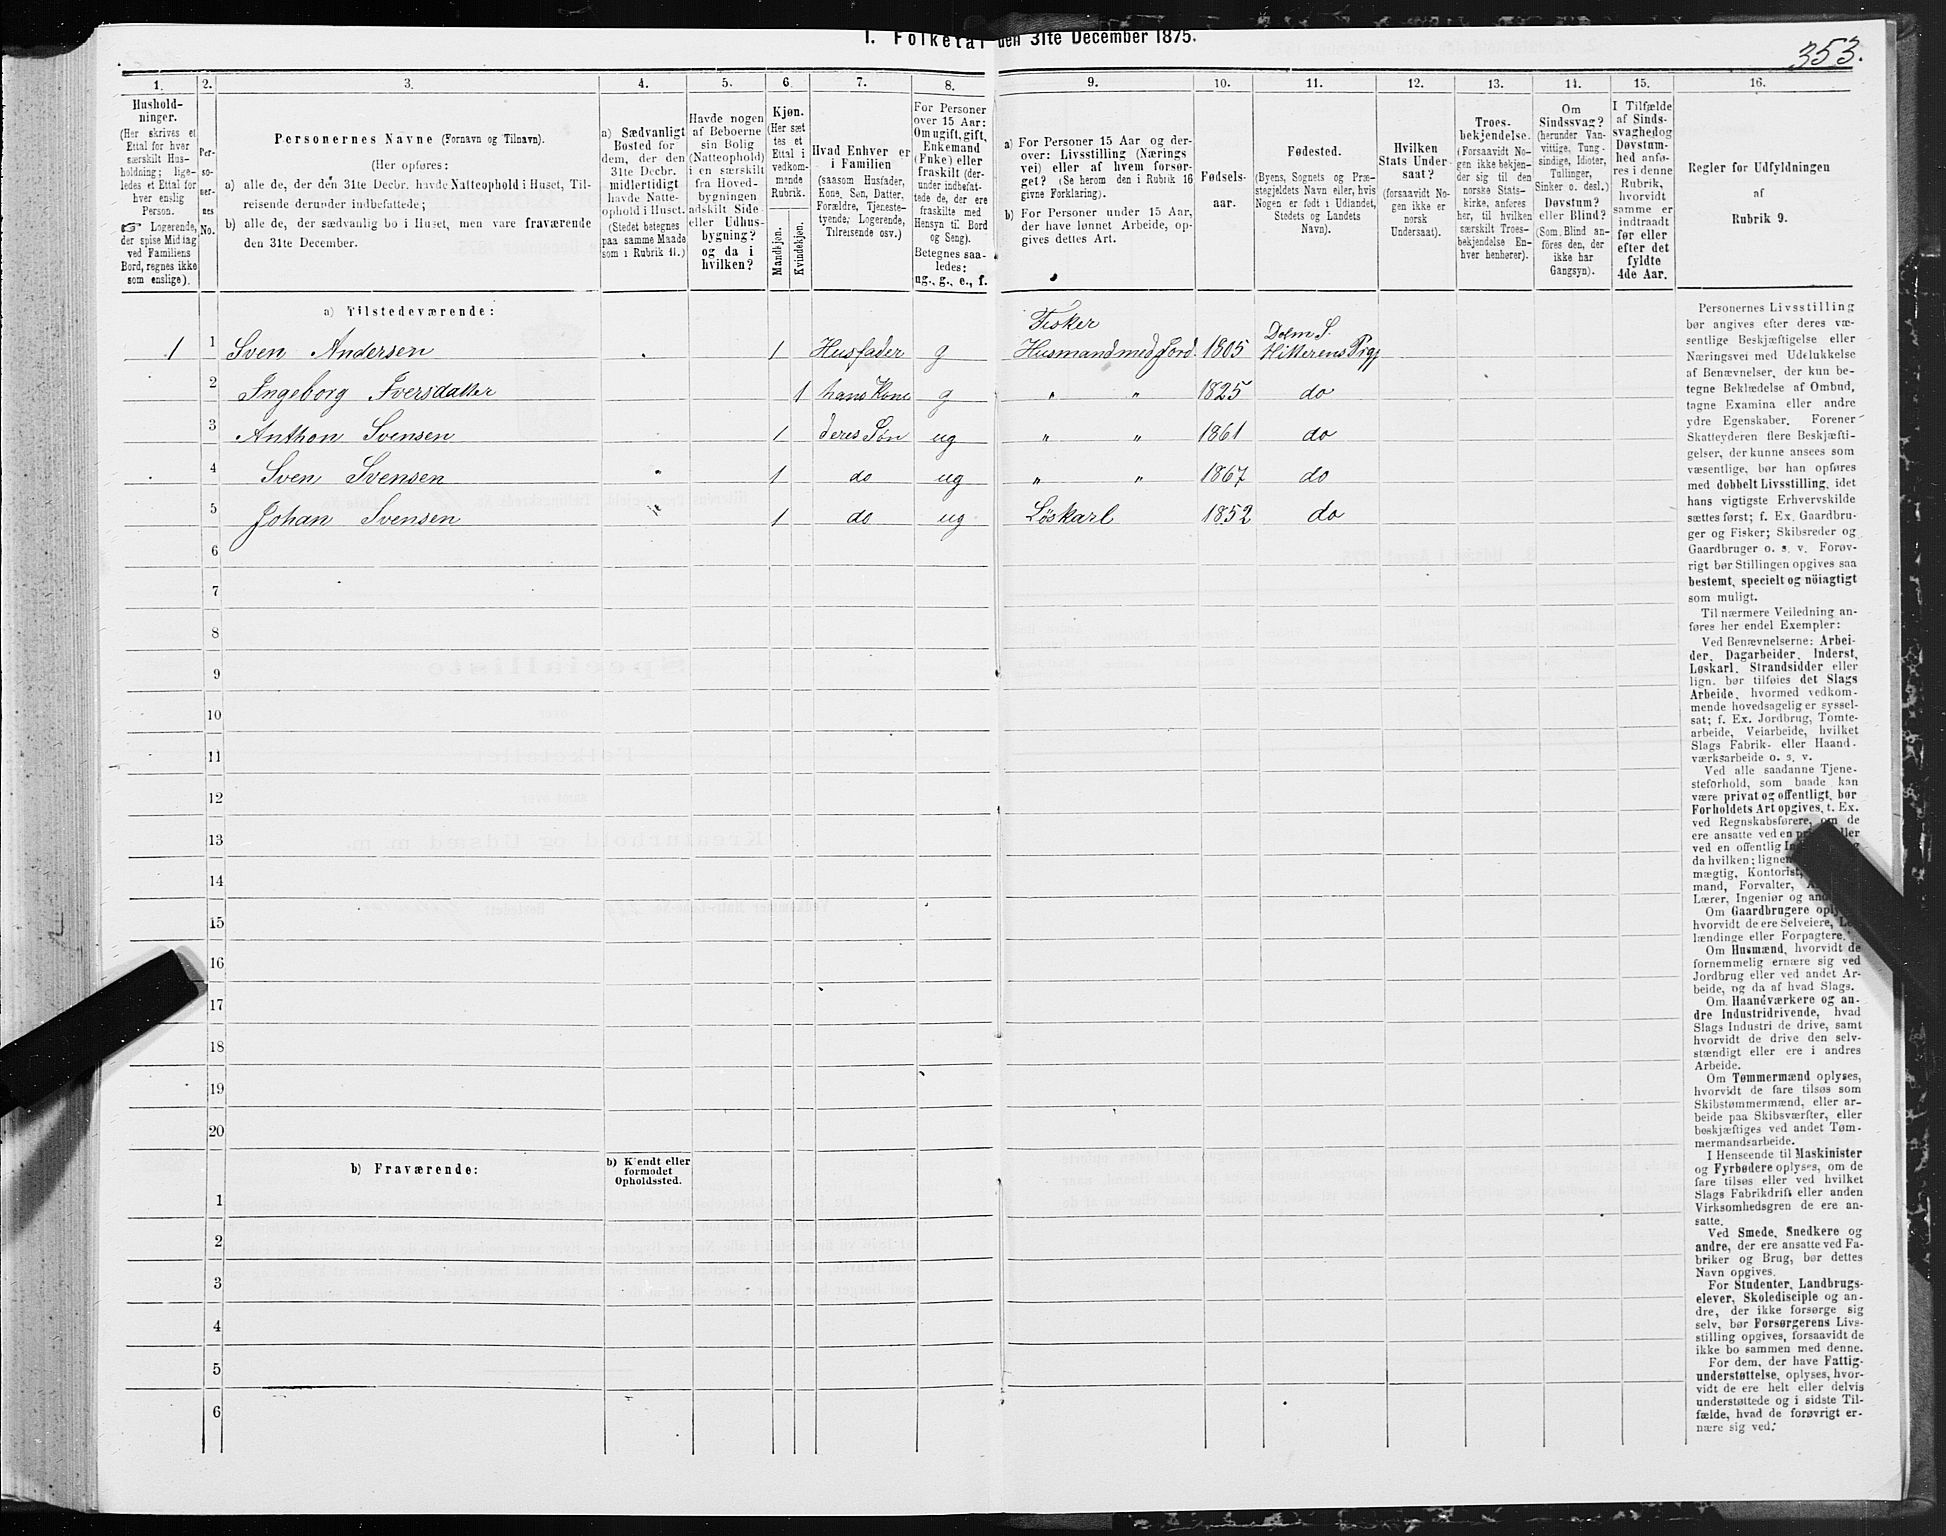 I. Folketal den 31te December 1875.
353.
1. 2. 3. 4. 5. 6. 7. 8. 9. 10. 11. 12. 13. 14. 15. 16.
Hushold-
ninger.
(Her skrives et
Ettal for hver
særskilt Hus-
holdning; lige-
ledes et Ettal for
hver enslig
Person.
☞ Logerende,
der spise Middag
ved Familiens
Bord, regnes ikke
som enslige).
Per-
so-
ner-
nes
No.
Personernes Navne (Fornavn og Tilnavn).
(Her opføres:
a) alle de, der den 31te Decbr. havde Natteophold i Huset, Til-
reisende derunder indbefattede;
b) alle de, der sædvanlig bo i Huset, men vare fraværende
den 31te December.
a) Sædvanligt
Bosted for
dem, der den
31te Decbr.
midlertidigt
havde Natte-
ophold i Huset.
(Stedet betegnes
paa samme Maade
som i Rubrik 11.)
Havde nogen
af Beboerne
sin Bolig
(Natteophold)
i en særskilt
fra Hoved-
bygningen
adskilt Side-
eller Udhus-
bygning?
og da i
hvilken?
Kjøn.
(Her sæt-
tes et
Ettal i
vedkom-
mende
Rubrik.
Mandkjøn.
Kvindekjøn.
Hvad Enhver er
i Familien
(saasom Husfader,
Kone, Søn, Datter,
Forældre, Tjeneste-
tyende, Logerende,
Tilreisende osv.)
For Personer
over 15 Aar:
Om ugift, gift,
Enkemand
(Enke) eller
fraskilt (der-
under indbefat-
tede de, der ere
fraskilte med
Hensyn til Bord
og Seng).
Betegnes saa-
ledes:
ug., g., e., f.
a) For Personer 15 Aar og der-
over: Livsstilling (Nærings-
vei) eller af hvem forsør-
get? (Se herom den i Rubrik 16
givne Forklaring).
b) For Personer under 15 Aar,
der have lønnet Arbeide, op-
gives dettes Art.
Fødsels-
aar.
Fødested.
(Byens, Sognets og Præ-
stegjeldets Navn eller, hvis
Nogen er født i Udlandet,
Stedets og Landets
Navn).
Hvilken
Stats Under-
saat?
(forsaavidt No-
gen ikke er
norsk
Undersaat).
Troes-
bekjendelse.
(Forsaavidt No-
gen ikke bekjen-
der sig til den
norske Stats-
kirke, anføres
her, til hvilken
særskilt Troes-
bekjendelse En-
hver henhører).
Om
Sindssvag?
(herunder Van-
vittige, Tung-
sindige, Idioter,
Tullinger,
Sinker o. desl.)
Døvstum?
eller Blind?
(Som Blind an-
føres den, der
ikke har
Gangsyn).
I Tilfælde
af Sinds-
svaghed og
Døvstum-
hed anfø-
res i denne
Rubrik,
hvorvidt
samme er
indtraadt
før eller
efter det
fyldte
4de Aar.
Regler for Udfyldningen
af
Rubrik 9.
a) Tilstedeværende:
1 1 Sven Andersen 1 Husfader g Fisker Husmand med Jord. 1805 Dolm S. Hitterens Prgj
2 Ingeborg Iversdatter 1 hans Kone g " " 1825 do
3 Anthon Svensen 1 deres Søn ug " " 1861 do
4 Sven Svensen 1 do ug " " 1867 do
5 Johan Svensen 1 do ug Løskarl 1852 do
6
7
8
9
10
11
12
13
14
15
16
17
18
19
20
b) Fraværende:
b) Kjendt eller
formodet
Opholdssted.
1
2
3
4
5
6
Personernes Livsstilling
bør angives efter deres væ-
sentlige Beskjæftigelse eller
Næringsvei med Udelukkelse
af Benævnelser, der kun be-
tegne Beklædelse af Ombud,
tagne Examina eller andre
ydre Egenskaber. Forener
Skatteyderen flere Beskjæfti-
gelser, der kunne ansees som
væsentlige, bør han opføres
med dobbelt Livsstilling, idet
hans vigtigste Erhvervskilde
sættes først; f. Ex. Gaardbru-
ger og Fisker; Skibsreder og
Gaardbruger o. s. v. Forøv-
rigt bør Stillingen opgives saa
bestemt, specielt og nöiagtigt
som muligt.
Til nærmere Veiledning an-
føres her endel Exempler:
Ved Benævnelserne: Arbei-
der, Dagarbeider, Inderst,
Løskarl, Strandsidder eller
lign. bør tilføies det Slags
Arbeide, hvormed vedkom-
mende hovedsagelig er syssel-
sat; f. Ex. Jordbrug, Tomte-
arbeide, Veiarbeide, hvilket
Slags Fabrik- eller Haand-
værksarbeide o. s. v.
Ved alle saadanne Tjene-
steforhold, som baade kan
være privat og offentligt, bør
Forholdets Art opgives, t. Ex.
ved Regnskabsførere, om de
ere ansatte ved en
ved en offentlig
da hvilken;
mægtig, Kontorist,
mand, Forvalter,
Lærer, Ingeniør og
Om Gaardbrugere
hvorvidt de ere Selveiere,
lændinge eller Forpagtere.
Om Husmænd, hvorvidt de
fornemmelig ernære sig ved
Jordbrug eller ved andet Ar-
beide, og da af hvad Slags.
Om Haandværkere og an-
dre Industridrivende, hvad
Slags Industri de drive, samt
hvorvidt de drive den selv-
stændigt eller ere i andres
Arbeide.
Om Tømmermænd oplyses,
hvorvidt de fare tilsøs som
Skibstømmermænd, eller ar-
beide paa Skibsværfter, eller
beskjæftiges ved andet Tøm-
mermandsarbeide.
I Henseende til Maskinister
og Fyrbødere oplyses, om de
fare tilsøs eller ved hvilket
Slags Fabrikdrift eller anden
Virksomhedsgren de ere an-
satte.
Ved Smede, Snedkere og
andre, der ere ansatte ved Fa-
briker og Brug, bør dettes
Navn opgives.
For Studenter, Landbrugs-
elever, Skoledisciple og an-
dre, der ikke forsørge sig
selv, bør Forsørgerens Livs-
stilling opgives, forsaavidt de
ikke bo sammen med denne.
For dem, der have Fattig-
understøttelse, oplyses, hvor-
vidt de ere helt eller delvis
understøttede og i sidste Til-
fælde, hvad de forøvrigt er-
nære sig ved.